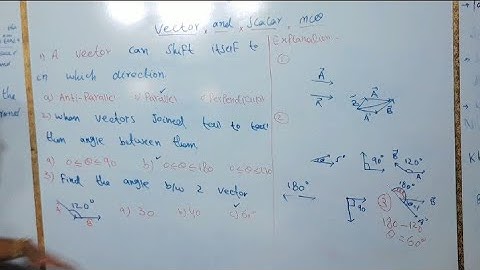 Vector, and, Scalar, mcq
1) A vector can shift itself to
in which direction
a) Anti-Parallel b) Parallel c) Perpendicular
2) when vectors joined tail to tail
then angle between them
a) 0≤θ≤90 b) 0≤θ≤180 c) 0≤θ≤
3) Find the angle b/w 2 vector
A 120° B
a) 30 b) 40 c) 60°
Explanation
①
A
A
A
②
5°
90°
120°
B
A
180°
90
180°
③
180-120
θ=60°
the
the